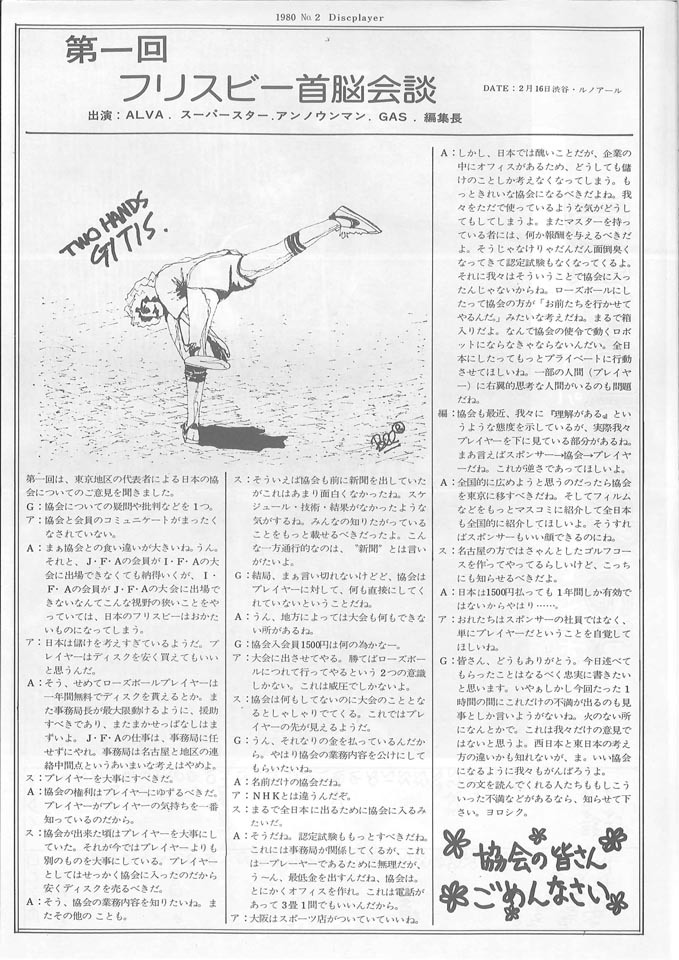 1980 No.2 Discplayer
第一回
フリスビー首脳会談
DATE：2月16日渋谷・ルノアール
出演：ALVA．スーパースター．アンノウンマン．GAS．編集長
TWO HANDS
GITIS.
第一回は、東京地区の代表者による日本の協
会についてのご意見を聞きました。
G：協会についての疑問や批判などを1つ。
ア：協会と会員のコミュニケートがまったく
なされていない。
A：まぁ協会との食い違いが大きいね。うん。
それと、J・F・Aの会員がI・F・Aの大
会に出場できなくても納得いくが、I・
F・Aの会員がJ・F・Aの大会に出場で
きないなんてこんな視野の狭いことをや
っていては、日本のフリスビーはおかた
いものになってしまう。
ア：日本は儲けを考えすぎているようだ。プ
レイヤーはディスクを安く買えてもいい
と思うんだ。
A：そう、せめてローズボールプレイヤーは
一年間無料でディスクを貰えるとか。ま
た事務局長が最大限動けるように、援助
すべきであり、またまかせっぱなしはま
ずいよ。J・F・Aの仕事は、事務局に任
せずにやれ。事務局は名古屋と地区の連
絡中間点というあいまいな考えはやめよ。
ス：プレイヤーを大事にすべきだ。
A：協会の権利はプレイヤーにゆずるべきだ。
プレイヤーがプレイヤーの気持ちを一番
知っているのだから。
ス：協会が出来た頃はプレイヤーを大事にし
ていた。それが今ではプレイヤーよりも
別のものを大事にしている。プレイヤー
としてはせっかく協会に入ったのだから
安くディスクを売るべきだ。
A：そう、協会の業務内容を知りたいね。ま
たその他の ことも。
ス：そういえば協会も前に新聞を出していた
がこれはあまり面白くなかったね。スケ
ジュール・技術・結果がなかったような
気がするね。みんなの知りたがっている
ことをもっと載せるべきだったよ。こん
な一方通行的なのは、〝新聞〟とは言い
がたいよ。
G：結局、まぁ言い切れないけどど、協会は
プレイヤーに対して、何も直接にしてく
れていないということだね。
A：うん、地方によっては大会も何もできな
い所があるね。
G：協会入会員1500円は何の為かなー。
ア：大会に出させてやる。勝てばローズボー
ルにつれて行ってやるという2つの意識
しかない。これは威圧でしかないよ。
ス：協会は何もしてないのに大会のこととな
るとしゃしゃりでてくる。これではプレイ
ヤーの先が見えるようだ。
G：うん、それなりの金を払っているんだか
ら。やはり協会の業務内容を公けにして
もらいたいね。
A：名前だけの協会だね。
ア：NHKとは違うんだぞ。
ス：まるで全日本に出るために協会に入るみ
たいだ。
A：そうだね。認定試験ももっとすべきだね。
これには事務局が関係してくるが、これ
は一プレーヤーであるために無理だが、
う～ん、最低金を出すんだね、協会は。
とにかくオフィスを作れ。これは電話が
あって3畳1間でもいいんだから。
ア：大阪はスポーツ店がついていていいね。
A：しかし、日本では醜いことだが、企業の
中にオフィスがあるため、どうしても儲
けのことしか考えなくなってしまう。も
っときれいな協会になるべきだよね。我
々をただで使っているような気がどうし
てもしてしまうよ。またマスターを持っ
ている者には、何か報酬を与えるべきだ
よ。そうじゃなけりゃだんだん面倒臭く
なってきて認定試験もなくなってくるよ。
それに我々はそういうことで協会に入っ
たんじゃないからね。ローズボールにし
たって協会の方が「お前たちを行かせて
やるんだ。」みたいな考えだね。まるで箱
入りだよ。なんで協会の使令で動くロボ
ットにならなきゃならないんだい。全日
本にしたってもっとプライベートに行動
させてほしいね。一部の人間（プレイヤ
ー）に右翼的思考な人間がいるのも問題
だね。
編：協会も最近、我々に『理解がある』とい
うような態度を示しているが、実際我々
プレイヤーを下に見ている部分があるね。
まあ言えばスポンサー→協会→プレイヤ
ーだね。これが逆さであってほしいよ。
A：全国的に広めようと思うのだったら協会
を東京に移すべきだね。そしてフィルム
などをもっとマスコミに紹介して全日本
も全国的に紹介してほしいよ。そうすれ
ばスポンサーもいい顔できるのにね。
ス：名古屋の方ではさゃんとしたゴルフコー
スを作ってやってるらしいけど、こっち
にも知らせるべきだよ。
A：日本は1500円払っても1年間しか有効で
はないからやはり……。
ア：おれたちはスポンサーの社員ではなく、
単にプレイヤーだということを自覚して
ほしいね。
G：皆さん、どうもありがとう。今日述べて
もらったことはなるべく忠実に書きたい
と思います。いやぁしかし今回たった1
時間の間にこれだけの不満が出るのも見
事としか言いようがないね。火のない所
になんとかで。これは我々だけの意見で
はないと思うよ。西日本と東日本の考え
方の違いかも知れないが、ま。いい協会
になるように我々もがんばろうよ。
この文を読んでくれる人たちももしこう
いった不満などがあるなら、知らせて下
さい。ヨロシク。
協会の皆さん
ごめんなさい